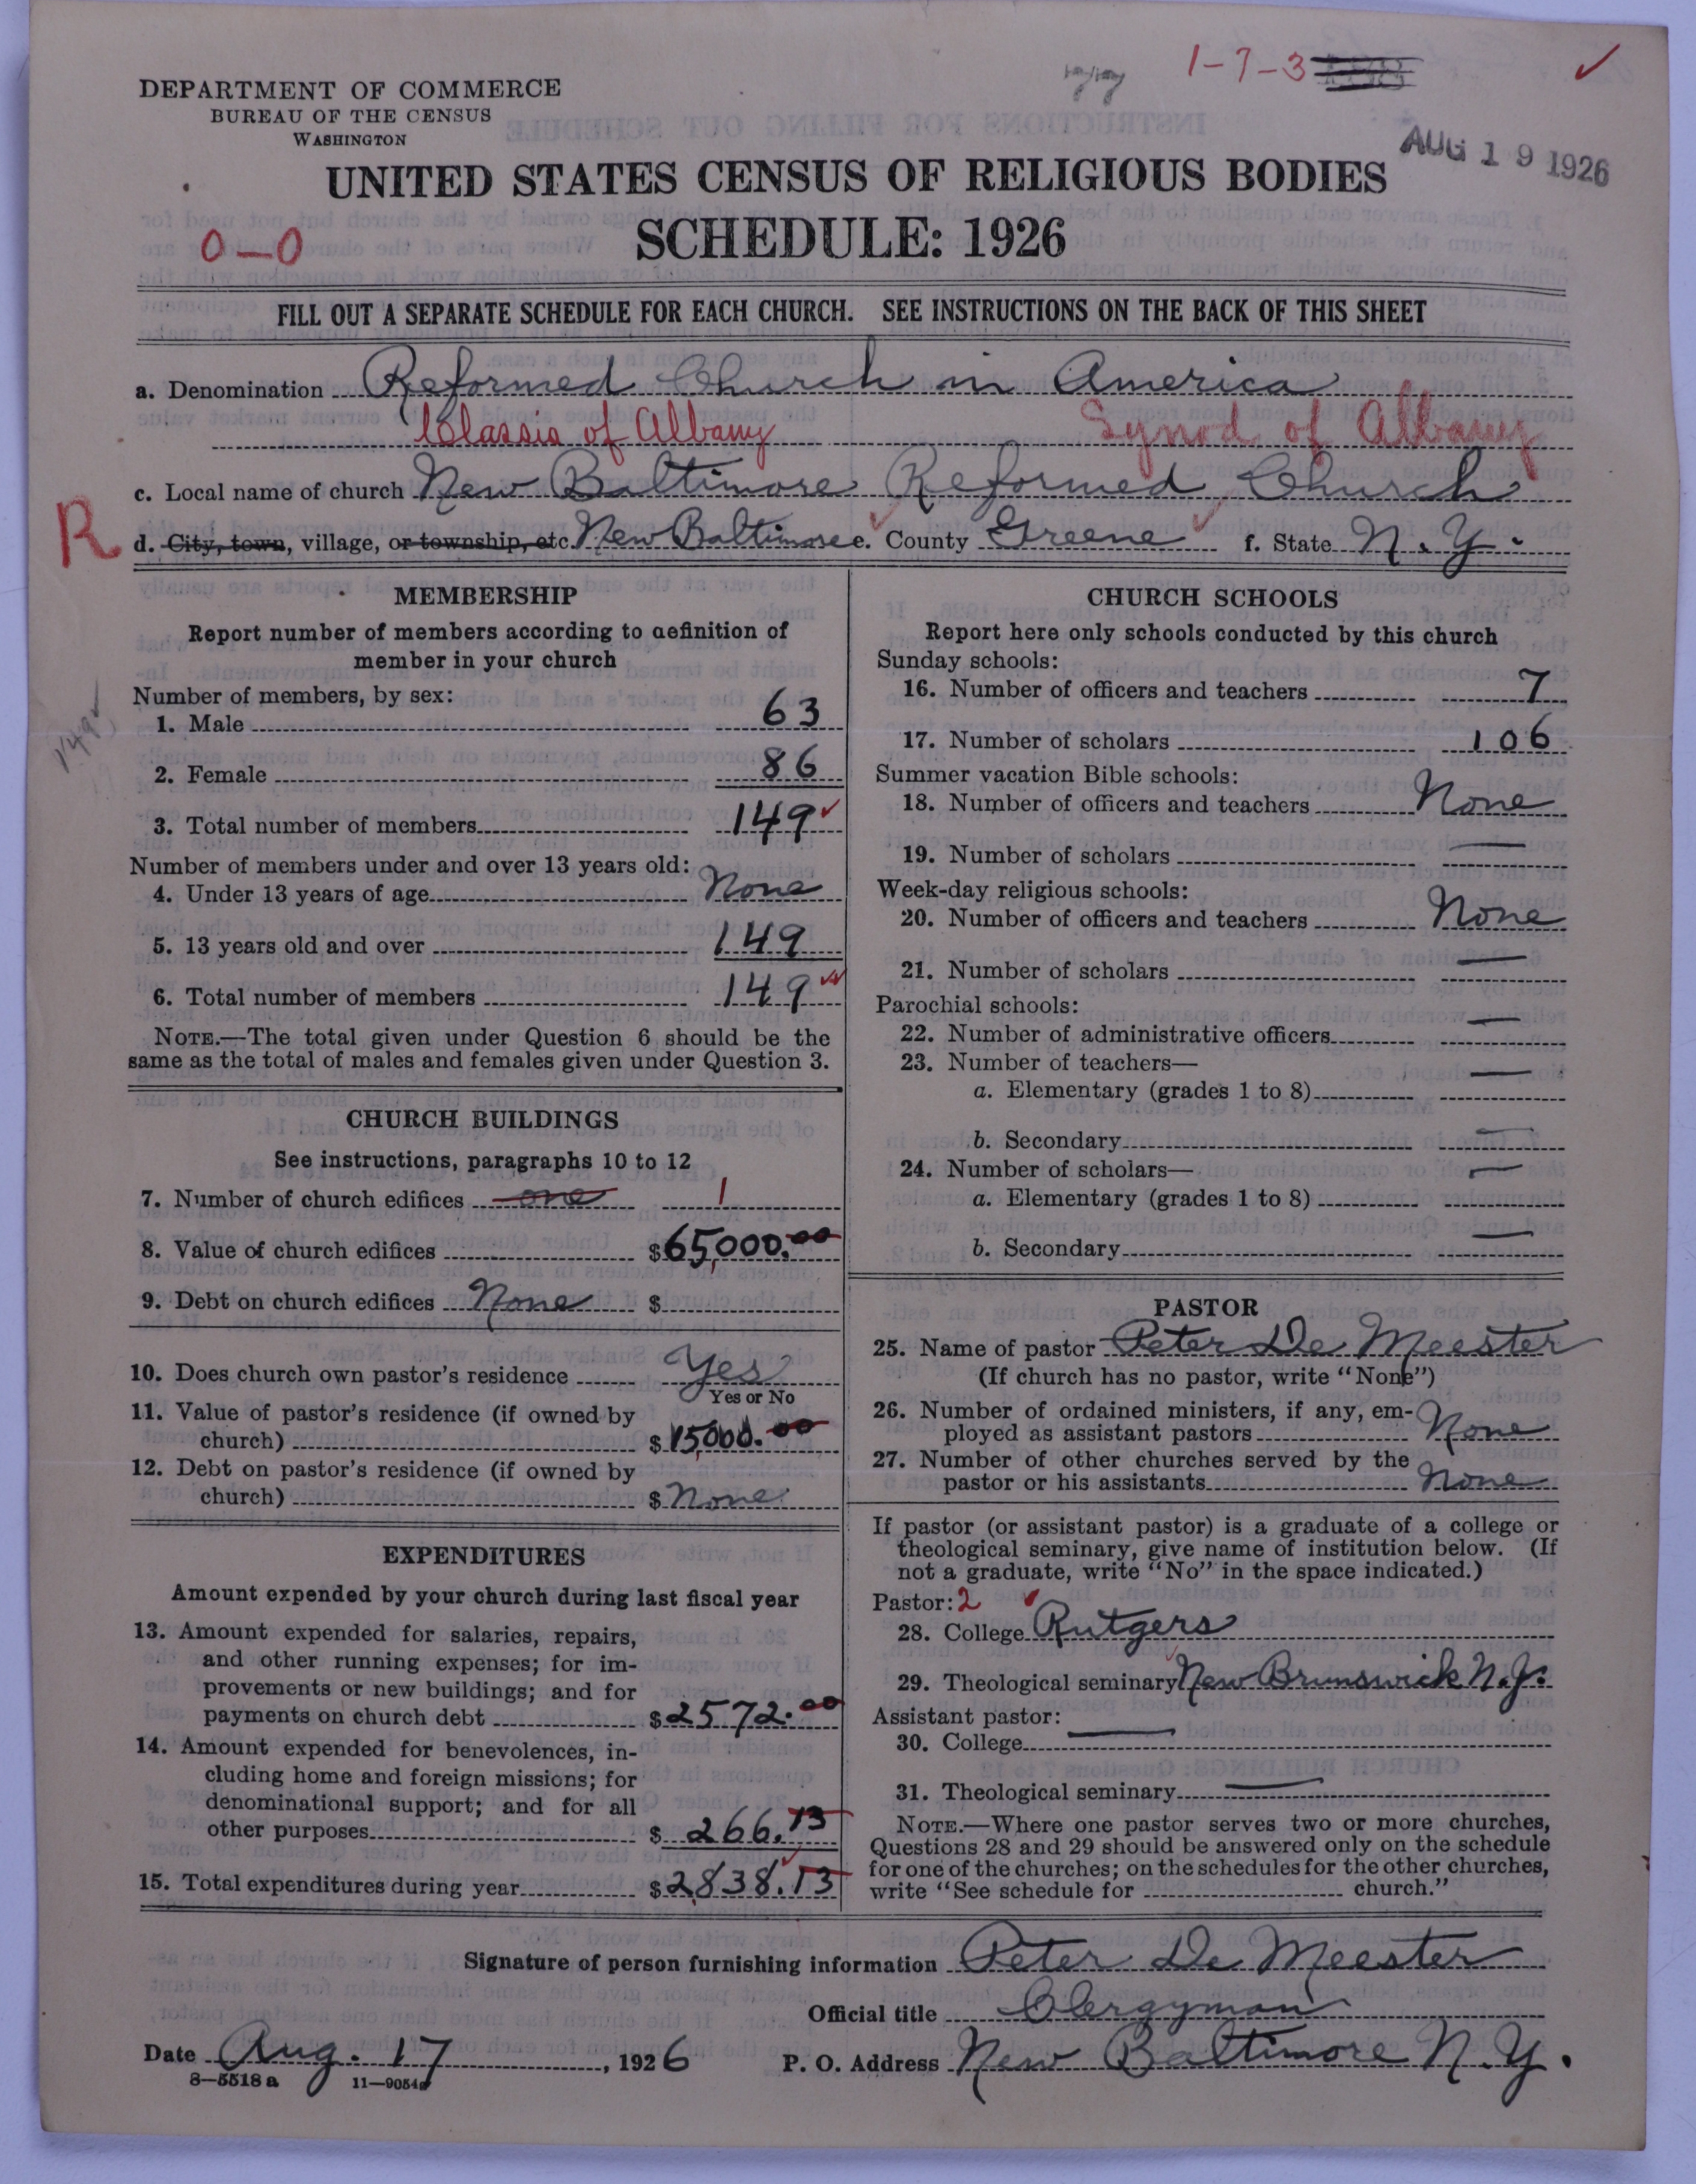 1-7-3
DEPARTMENT OF COMMERCE
BUREAU OF THE CENSUS
WASHINGTON
AUG 19 1926
UNITED STATES CENSUS OF RELIGIOUS BODIES
SCHEDULE: 1926
0-0
FILL OUT A SEPARATE SCHEDULE FOR EACH CHURCH. SEE INSTRUCTIONS ON THE BACK OF THIS SHEET
a. Denomination Reformed Church in America
Classis of Albany Synod of Albany
c. Local name of church New Baltimore Reformed Church
R
d. City, town, village, or township, etc. New Baltimore e. County Greene f. State N.Y.
MEMBERSHIP
Report number of members according to definition of
member in your church
Number of members, by sex:
1. Male 63
2. Female 86
149
3. Total number of members 149
Number of members under and over 13 years old:
4. Under 13 years of age None
5. 13 years old and over 149
6. Total number of members 149
NOTE.—The total given under Question 6 should be the
same as the total of males and females given under Question 3.
CHURCH BUILDINGS
See instructions, paragraphs 10 to 12
7. Number of church edifices one 1
8. Value of church edifices $65,000.00
9. Debt on church edifices None $
10. Does church own pastor's residence Yes
Yes or No
11. Value of pastor's residence (if owned by
church) $15,000.00
12. Debt on pastor's residence (if owned by
church) $ None
EXPENDITURES
Amount expended by your church during last fiscal year
13. Amount expended for salaries, repairs,
and other running expenses; for im-
provements or new buildings; and for
payments on church debt $2572.00
14. Amount expended for benevolences, in-
cluding home and foreign missions; for
denominational support; and for all
other purposes $266.13
15. Total expenditures during year $2,838.13
CHURCH SCHOOLS
Report here only schools conducted by this church
Sunday schools:
16. Number of officers and teachers 7
17. Number of scholars 106
Summer vacation Bible schools:
18. Number of officers and teachers None
19. Number of scholars —
Week-day religious schools:
20. Number of officers and teachers None
21. Number of scholars —
Parochial schools:
22. Number of administrative officers —
23. Number of teachers—
a. Elementary (grades 1 to 8) —
b. Secondary —
24. Number of scholars—
a. Elementary (grades 1 to 8) —
b. Secondary —
PASTOR
25. Name of pastor Peter De Meester
(If church has no pastor, write "None")
26. Number of ordained ministers, if any, em-
ployed as assistant pastors None
27. Number of other churches served by the
pastor or his assistants None
If pastor (or assistant pastor) is a graduate of a college or
theological seminary, give name of institution below. (If
not a graduate, write "No" in the space indicated.)
Pastor: 2
28. College Rutgers
29. Theological seminary New Brunswick N.J.
Assistant pastor:
30. College —
31. Theological seminary —
NOTE.—Where one pastor serves two or more churches,
Questions 28 and 29 should be answered only on the schedule
for one of the churches; on the schedules for the other churches,
write "See schedule for church."
Signature of person furnishing information Peter De Meester
Official title Clergyman
Date Aug. 17, 1926 P. O. Address New Baltimore N.Y.
8—5518 a 11—9054